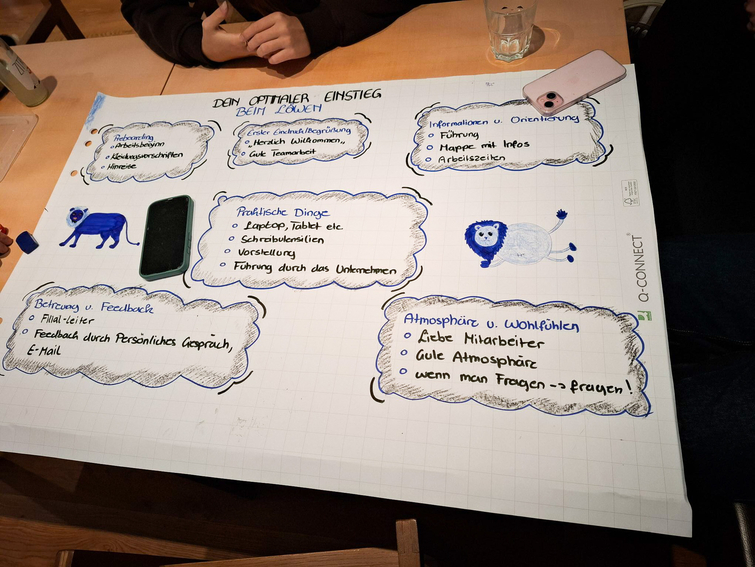 DEIN OPTIMALER EINSTIEG
BEIM LÖWEN
Arbeitsbeginn
Kleidungsvorschriften
Hinreise
Erster Eindruck/Begrüßung
"Herzlich Willkommen"
Gute Teamarbeit
Informationen u. Orientierung
Führung
Mappe mit Infos
Arbeitszeiten
Praktische Dinge
Laptop, Tablet etc
Schreibutensilien
Vorstellung
Führung durch das Unternehmen
Betreuung u. Feedback
Filial-Leiter
Feedback durch Persönliches Gespräch,
E-Mail
Atmosphäre u. Wohlfühlen
Liebe Mitarbeiter
Gute Atmosphäre
wenn man Fragen -> fragen!
Q-CONNECT